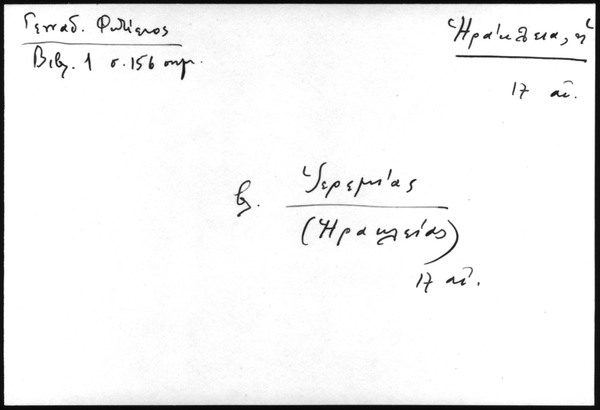 Γενναδ. Φωτίειος
Βιβλ. 1 σ. 156 σημ.
Ἡράκλεια, ἡ
17 αἰ.
βλ. Ἱερεμίας
(Ἡρακλείας)
17 αἰ.